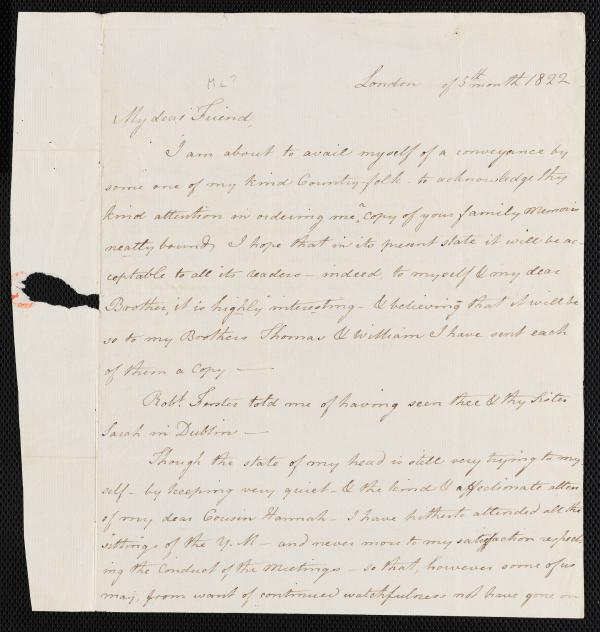 ML?
London of 5th month 1822
My dear Friend,
I am about to avail myself of a conveyance by
some one of my kind Country-folk to acknowledge thy
kind attention in ordering me a copy of your family Memoirs
neatly bound, I hope that in its present state it will be ac-
ceptable to all its readers - indeed, to myself & my dear
Brother, it is highly interesting - & believing that it will be
so to my Brothers Thomas & William I have sent each
of them a copy —
Robt. Forster told me of having seen thee & thy Sister
Sarah in Dublin —
Though the state of my head is still very trying to my-
self - by keeping very quiet - & the kind & affectionate atten
of my dear Cousin Hannah - I have hitherto attended all the
sittings of the Y.M - and never more to my satisfaction respect
ing the Conduct of the Meetings - so that, however some of us
may, from want of continued watchfulness not have gone on